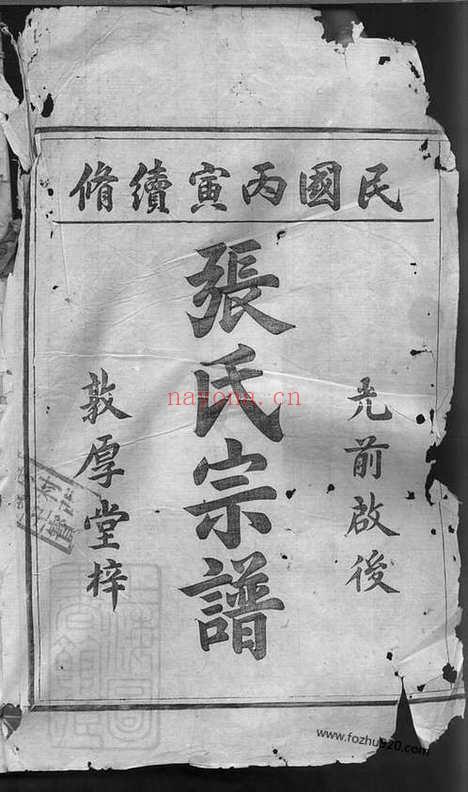 民國丙寅續脩
光前啟後
張氏宗譜
敦厚堂梓
nayona.cn
www.fozhu920.com